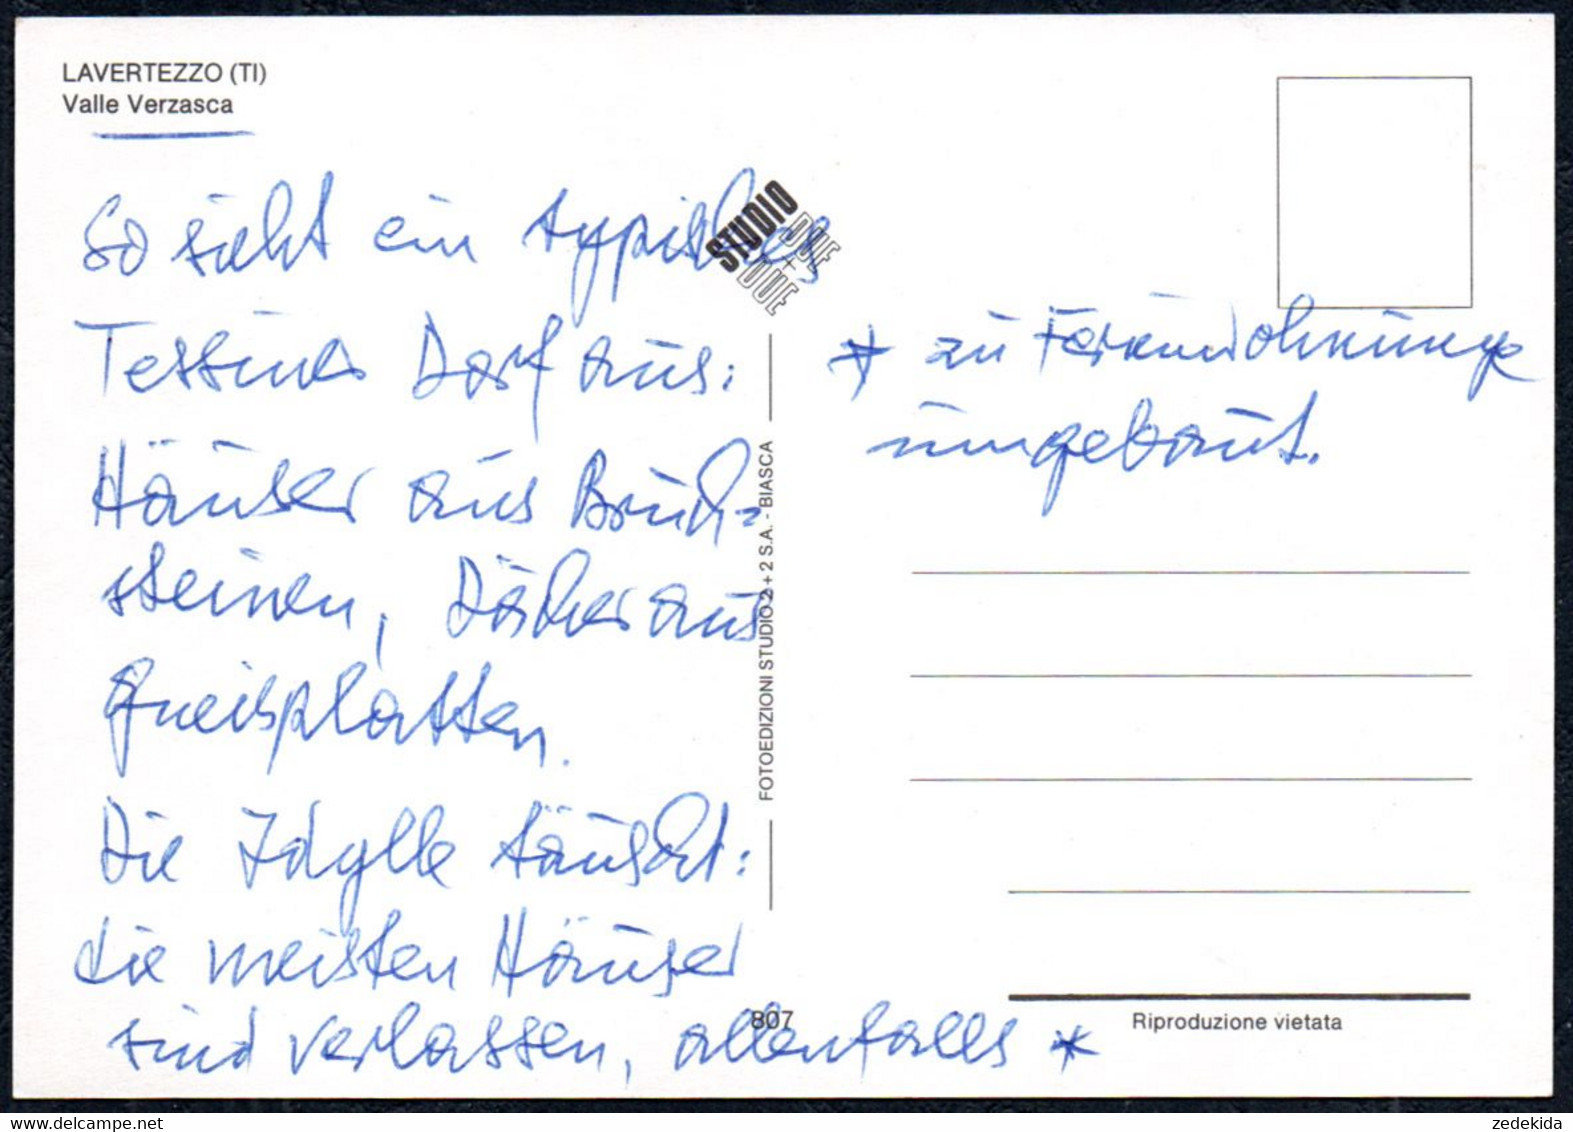 LAVERTEZZO (TI)
Valle Verzasca
So sieht ein typisches
Tessiner Dorf aus:
Häuser aus Bruch-
steinen, Dächer aus
Gneisplatten.
Die Idylle täuscht:
die meisten Häuser
sind verlassen, allenfalls *
* zu Ferienwohnungen
umgebaut.
STUDIO
DUE
+
DUE
FOTOEDIZIONI STUDIO 2 + 2 S.A. - BIASCA
807
Riproduzione vietata
zedekida